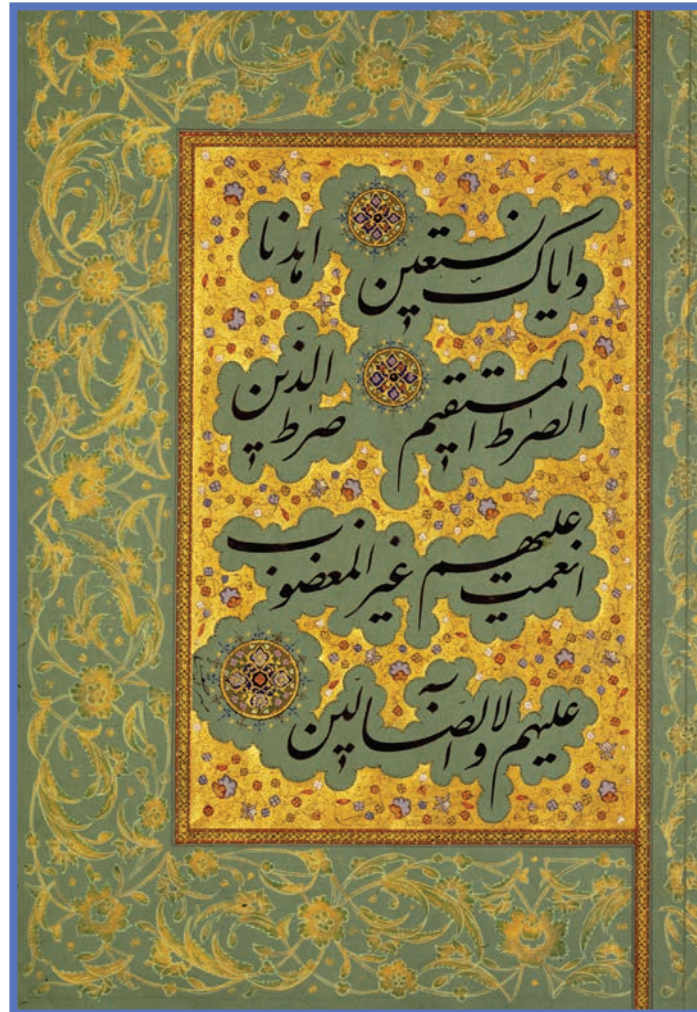 واياك نستعين اهدنا
الصرٰط المستقيم صرٰط الذّين
انعمت عليهم غير المغضوب
عليهم ولا الضّآلّين